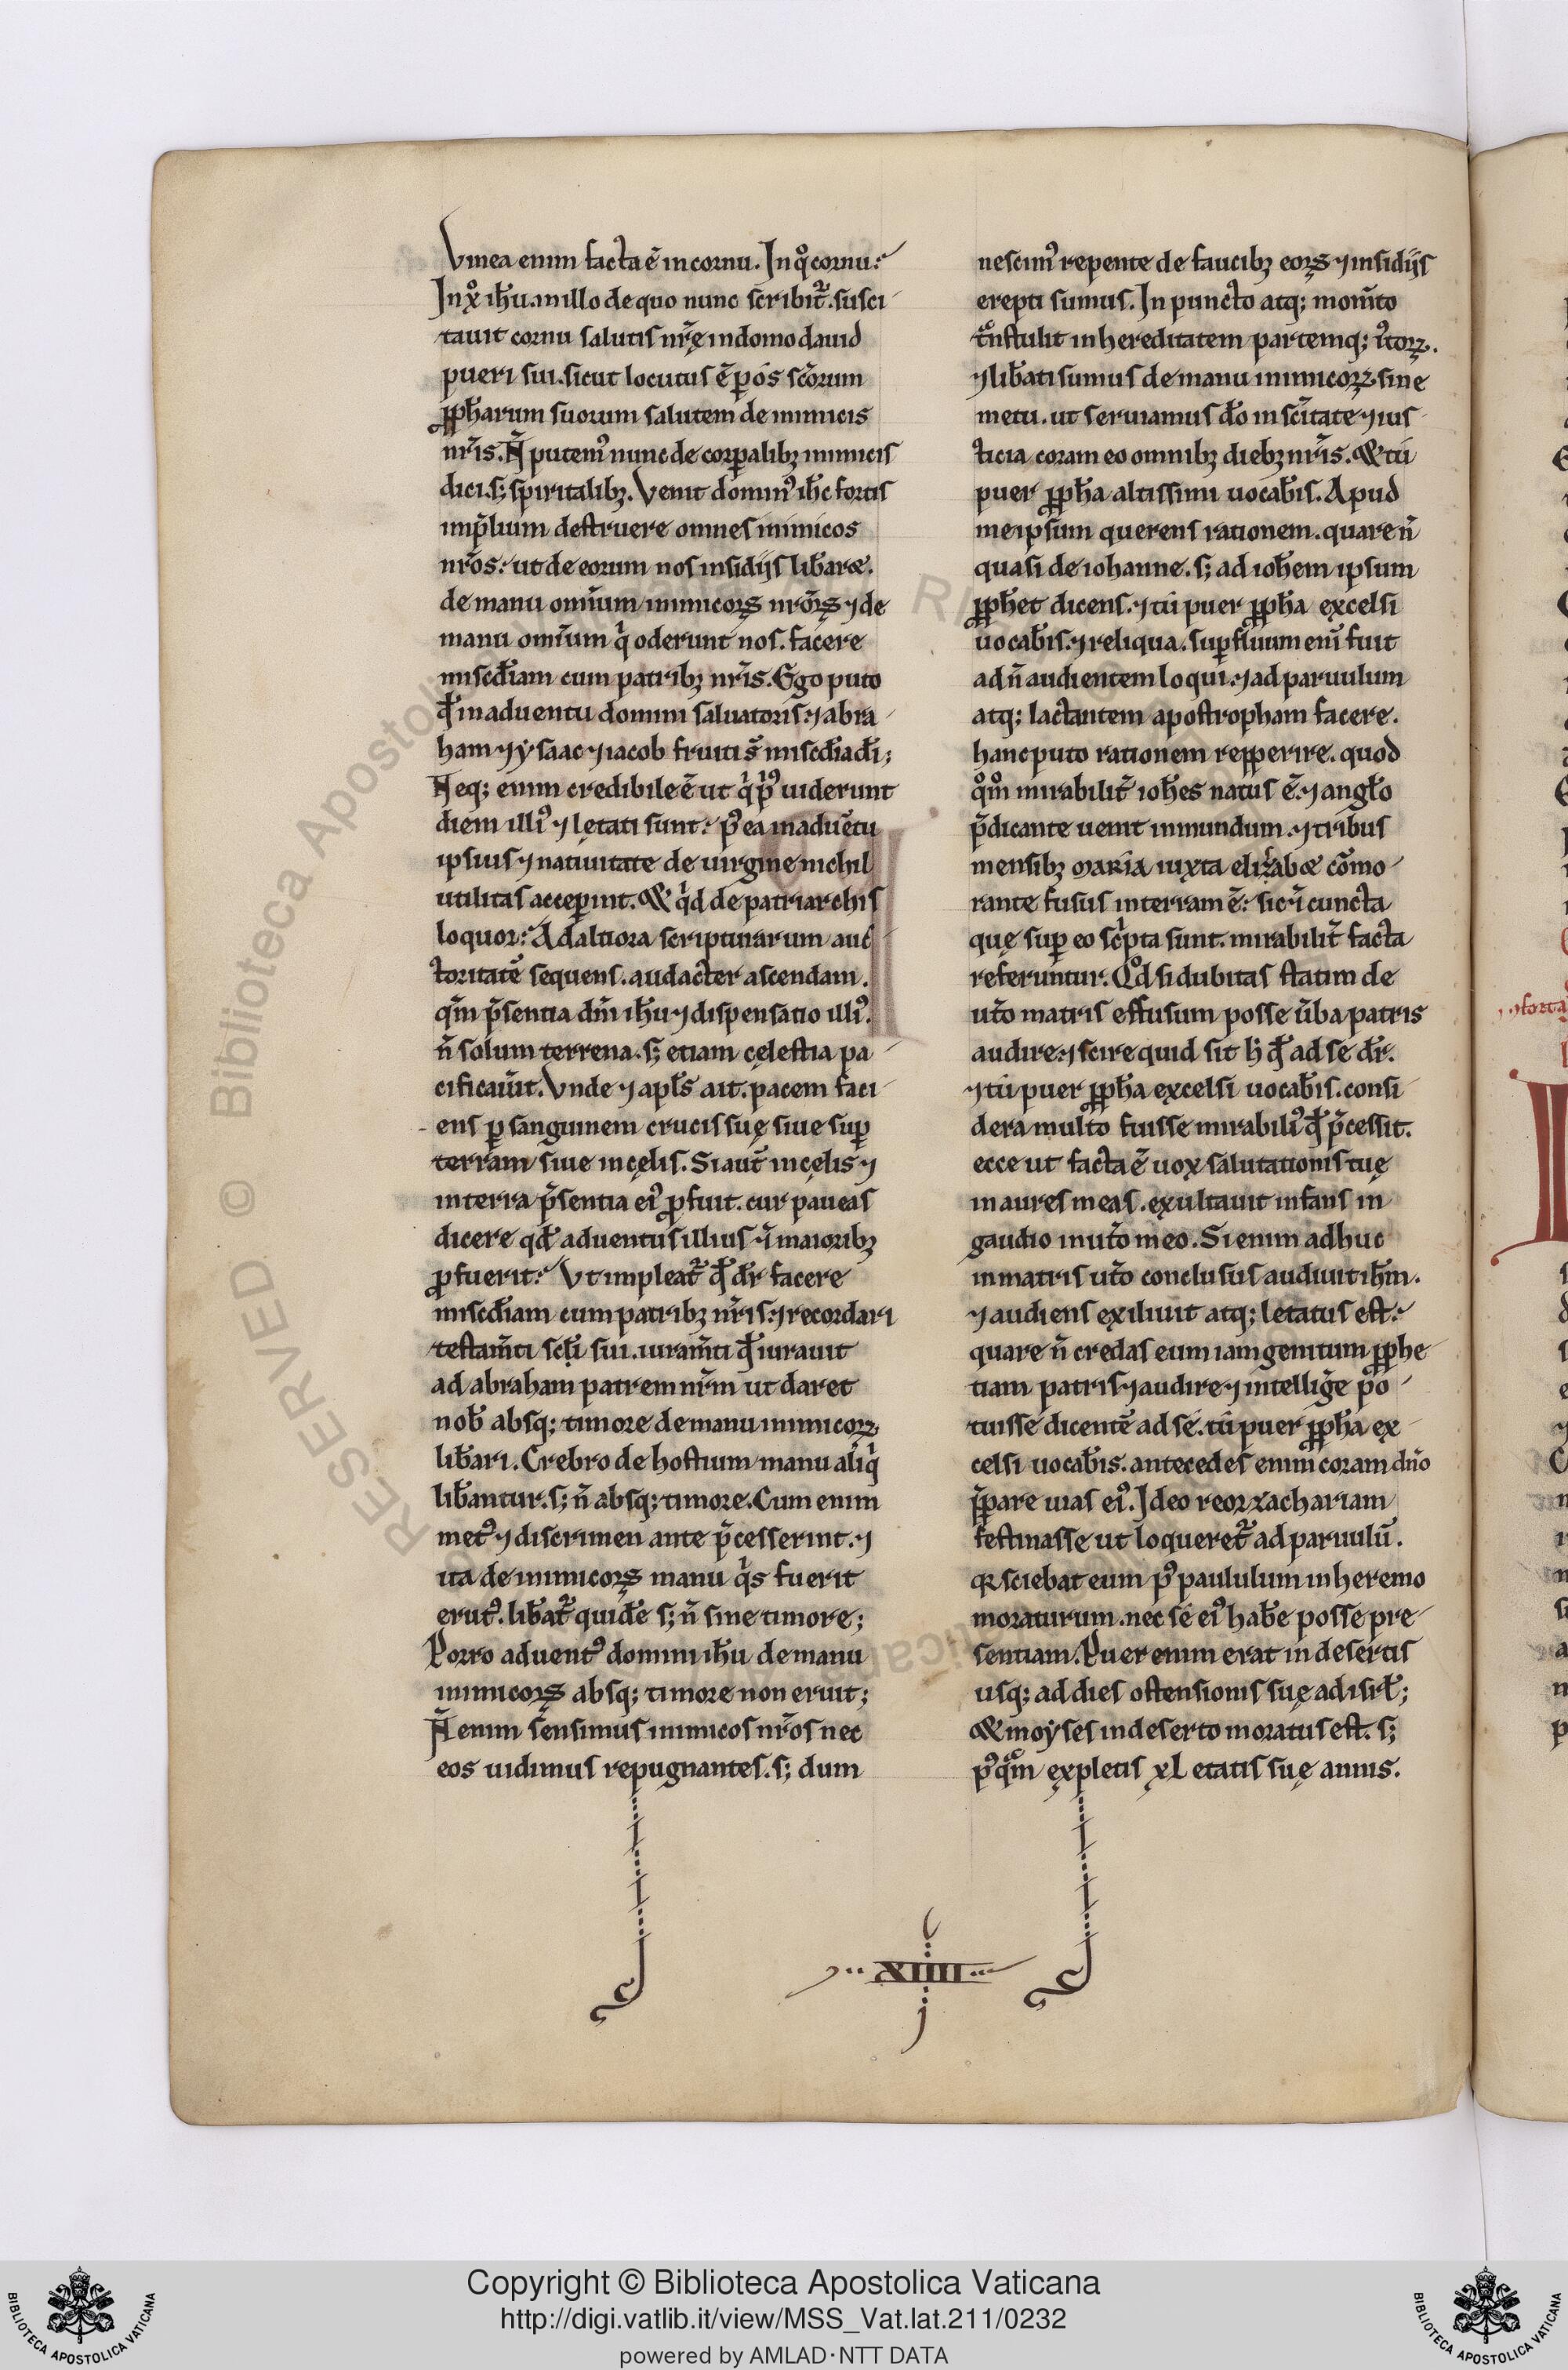 Vinea enim facta ē in cornu. In qͦ cornu?
In xͦ ihū. in illo de quo nunc scribit᷑. susci
tauit cornu salutis nr̄ę in domo dauid
pueri sui. sicut locutus ē ꝑ os sc̄orum
ꝓph̄arum suorum salutem de inimicis
nr̄is. N̄ putemꝰ nunc de corꝑalibꝫ inimicis
dici. s; spiritalibꝫ. Venit dominꝰ ih̄c fortis
in p̄lium destruere omnes inimicos
nr̄os. ut de eorum nos insidijs lib̄aret.
de manu omīum inimicoꝝ nr̄oꝝ ⁊ de
manu omīum qͥ oderunt nos. facere
misc̄diam cum patribꝫ nr̄is. Ego puto
qđ in aduentu domini saluatoris. ⁊ abra
ham ⁊ ysaac ⁊ iacob fruiti s̄ misc̄dia dī;
Neq; enim credibile ē ut qͥ pͥꝰ uiderunt
diem illiꝰ ⁊ lętati sunt. pꝰea in aduētu
ipsius ⁊ natiuitate de uirgine nichil
utilitas acceꝑint. Et qͥd de patriarchis
loquor? Ad altiora scripturarum auc
toritatē sequens. audacter ascendam.
qm̄ p̄sentia dn̄i ihū ⁊ dispensatio illiꝰ.
n̄ solum terrena. s; etiam cęlestia pa
cificauit. Vnde ⁊ apl̄s ait. pacem faci
ens ꝑ sanguinem crucis suę siue suꝑ
terram siue in cęlis. Si aut̄ in cęlis ⁊
in terra p̄sentia eiꝰ ꝓfuit. cur paueas
dicere qđ aduentus illius ⁊ī maioribꝫ
ꝓfuerit? Vt impleat᷑ qđ dr̄ facere
misc̄diam cum patribꝫ nr̄is. ⁊ recordari
testam̄ti sc̄i sui. iuram̄ti qđ iurauit
ad abraham patrem nr̄m ut daret
nob̄ absq; timore de manu inimicoꝝ
lib̄ari. Crebro de hostium manu aliqͥ
lib̄antur. s; n̄ absq; timore. Cum enim
metꝰ ⁊ discrimen ante p̄cesserint. ⁊
ita de inimicoꝝ manu qͥs fuerit
erutꝰ. lib̄at᷑ quidē s; n̄ sine timore;
Porro aduentꝰ domini ihū de manu
inimicoꝝ absq; timore non eruit;
N̄ enim sensimus inimicos nr̄os nec
eos uidimus repugnantes. s; dum
nescimꝰ repente de faucibꝫ eoꝝ ⁊ insidijs
erepti sumus. In puncto atq; mom̄to
tͣnstulit in hereditatem partemq; iꝰtoꝝ.
⁊ lib̄ati sumus de manu inimicoꝝ sine
metu. ut seruiamus dō in sc̄itate ⁊ ius
ticia coram eo omnibꝫ diebꝫ nr̄is. Et tu
puer ꝓph̄a altissimi uocab̄is. Apud
meipsum querens rationem. quare n̄
quasi de iohanne. s; ad ioh̄em ipsum
ꝓph̄et dicens. ⁊ tu puer ꝓph̄a excelsi
uocab̄is. ⁊ reliqua. suꝑfluum enī fuit
ad n̄ audientem loqui. ⁊ ad paruulum
atq; lactantem apostropham facere.
hanc puto rationem repperire. quod
qͦmͦ mirabilit᷑ ioh̄es natus ē. ⁊ angl̄o
p̄dicante uenit in mundum. ⁊ tribus
mensibꝫ maria iuxta elizabet cōmo
rante fusus in terram ē. sic ⁊ cuncta
quę suꝑ eo scͥpta sunt. mirabilit᷑ facta
referuntur. Qd̄ si dubitas statim de
ut̄o matris effusum posse ūba patris
audire. ⁊ scire quid sit h̄ qđ ad se dr̄.
⁊ tu puer ꝓph̄a excelsi uocab̄is. consi
dera multo fuisse mirabiliꝰ qđ p̄cessit.
ecce ut facta ē uox salutationis tuę
in aures meas. exultauit infans in
gaudio in ut̄o meo. Si enim adhuc
in matris ut̄o conclusus audiuit ih̄m.
⁊ audiens exiliuit atq; letatus est.
quare n̄ credas eum iam genitum ꝓphe
tiam patris ⁊ audire ⁊ intelliḡe po
tuisse dicentē ad se. tu puer ꝓph̄a ex
celsi uocab̄is. antecedes enim coram dn̄o
p̄pare uias eiꝰ. Ideo reor zachariam
festinasse ut loqueret᷑ ad paruulū.
qꝛ sciebat eum pꝰ paululum in heremo
moraturum. nec se eiꝰ hab̄e posse pre
sentiam. Puer enim erat in desertis
usq; ad dies ostensionis suę ad isrl̄;
Et moyses in deserto moratus est. s;
pꝰqͣm expletis xl etatis suę annis.
XIIII
RESERVED © Biblioteca Apostolica Vaticana
Copyright © Biblioteca Apostolica Vaticana
http://digi.vatlib.it/view/MSS_Vat.lat.211/0232
powered by AMLAD·NTT DATA
BIBLIOTECA APOSTOLICA VATICANA
BIBLIOTECA APOSTOLICA VATICANA